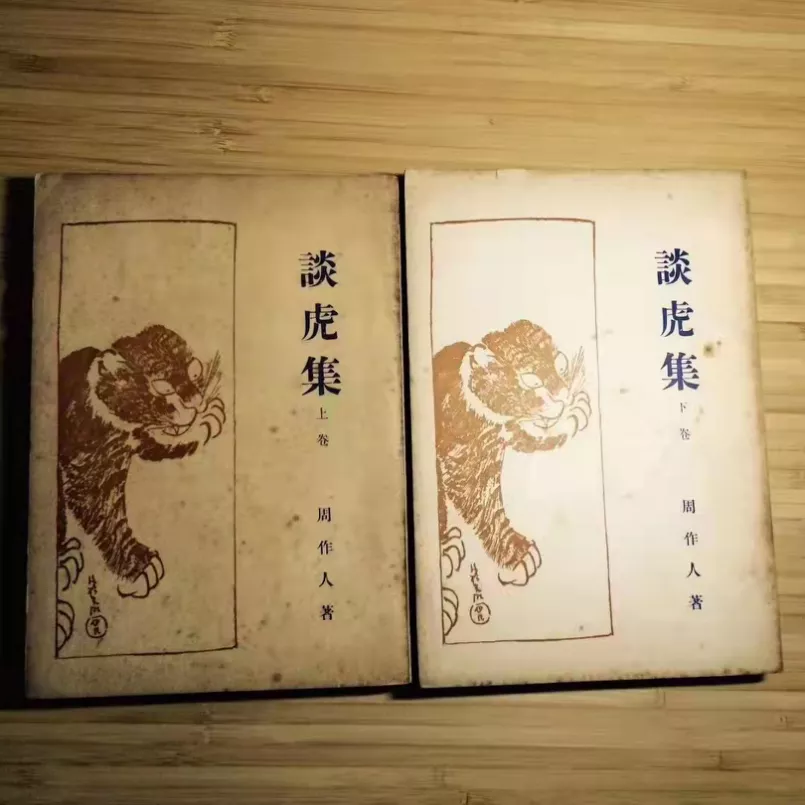 談虎集
上卷
周作人著
談虎集
下卷
周作人著